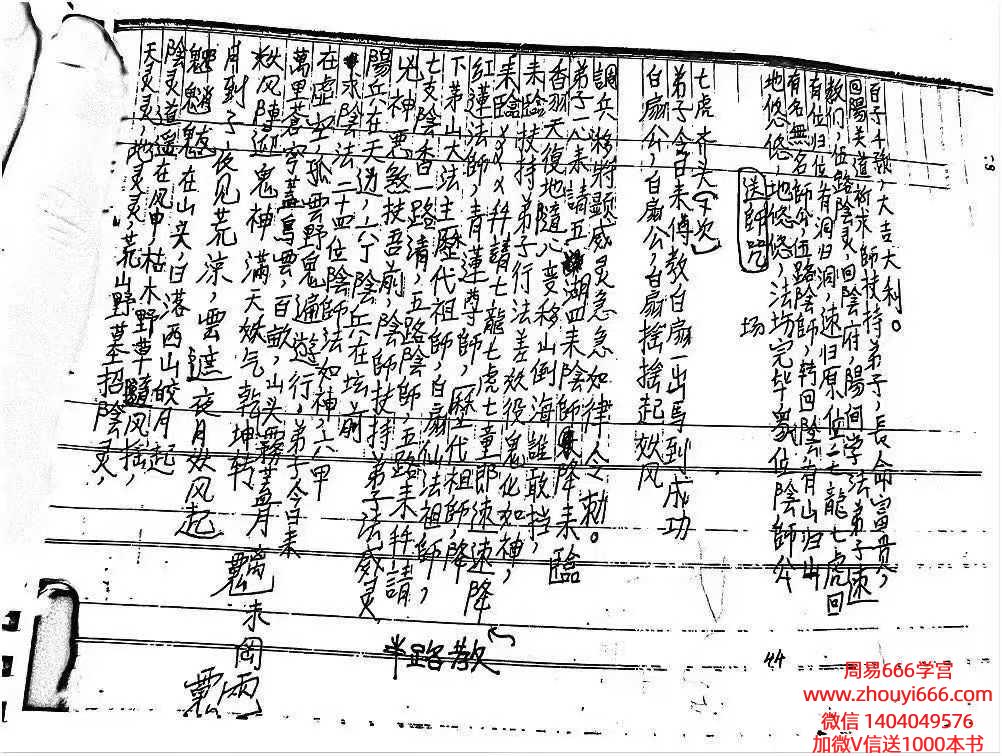 天灵灵,地灵灵,荒山野墓招陰灵,
陰灵逍遥在风中,枯木野草隨风摇,
在山头,日落西山皎月起
月到了夜见荒凉,雲遮夜月妖风起
妖风陣 鬼神满天妖气乾坤转
萬里蒼穹盖鳥雲,百畝山头霧盖月
在虚空,孤雲野鬼遍遊行,弟子今日来
求陰法二十四位陰師法如神,六甲
陽兵在天边,六丁陰兵在坛前
兇神悪煞扶吾前,陰師扶持弟子法威灵
七支陰香一路请,五路陰師五路来拜請
下茅山大法主歷代祖師,白扇仙法祖師,
红蓮法師,青蓮尊師,歷代祖師,降
来臨××拜請七龍七虎七童郎速速降
来臨扶持弟子行法差妖役鬼化如神,
天復地隨心变移山倒海誰敢挡,
弟子一心来請五湖四来陰師降来臨
調兵移將顕威灵急急如律令勅。
半路教
白扇公,白扇公,白扇摇摇起妖风
弟子今日来傅教白扇一出馬到成功
七虎齐头(7次)
送師咒
场
地悠悠,地悠悠,法坊完毕眾位陰師公
有名無名師公,伍路陰師,转回 有山归山
有位归位有洞归洞,速归原位 七龍七虎回
教们,伍路陰灵,回陰府,陽间学法弟子速
回陽关道祈求師扶持弟子,長命富贵,
百子千孙,大吉大利。
44
周易666学宫
www.zhouyi666.com
微信 1404049576
加微V信送1000本书